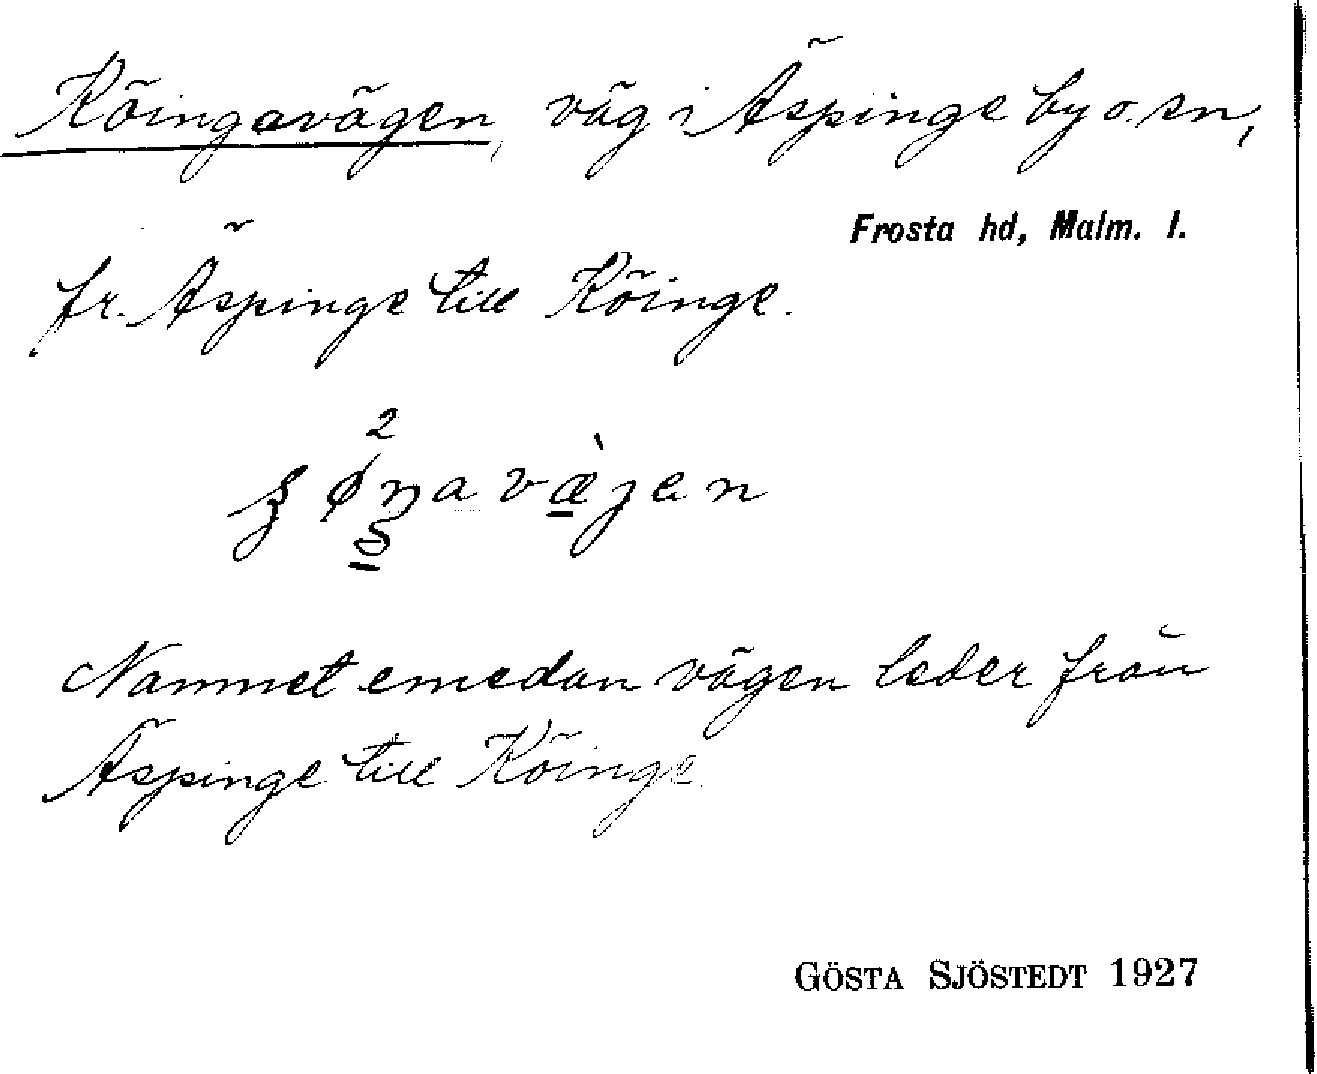 Köingavägen, väg i Äspinge by o. sn,
Frosta hd, Malm. l.
fr. Äspinge till Köinge.
Namnet emedan vägen leder från
Äspinge till Köinge.
GÖSTA SJÖSTEDT 1927